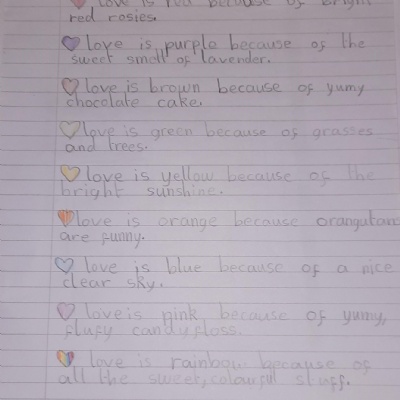 love is red because of bright
red rosies.
love is purple because of the
sweet smell of lavender.
love is brown because of yumy
chocolate cake.
love is green because of grasses
and trees.
love is yellow because of the
bright sunshine.
love is orange because orangutans
are funny.
love is blue because of a nice
clear sky.
love is pink because of yumy,
flufy candyfloss.
love is rainbow because of
all the sweet, colourful stuff.